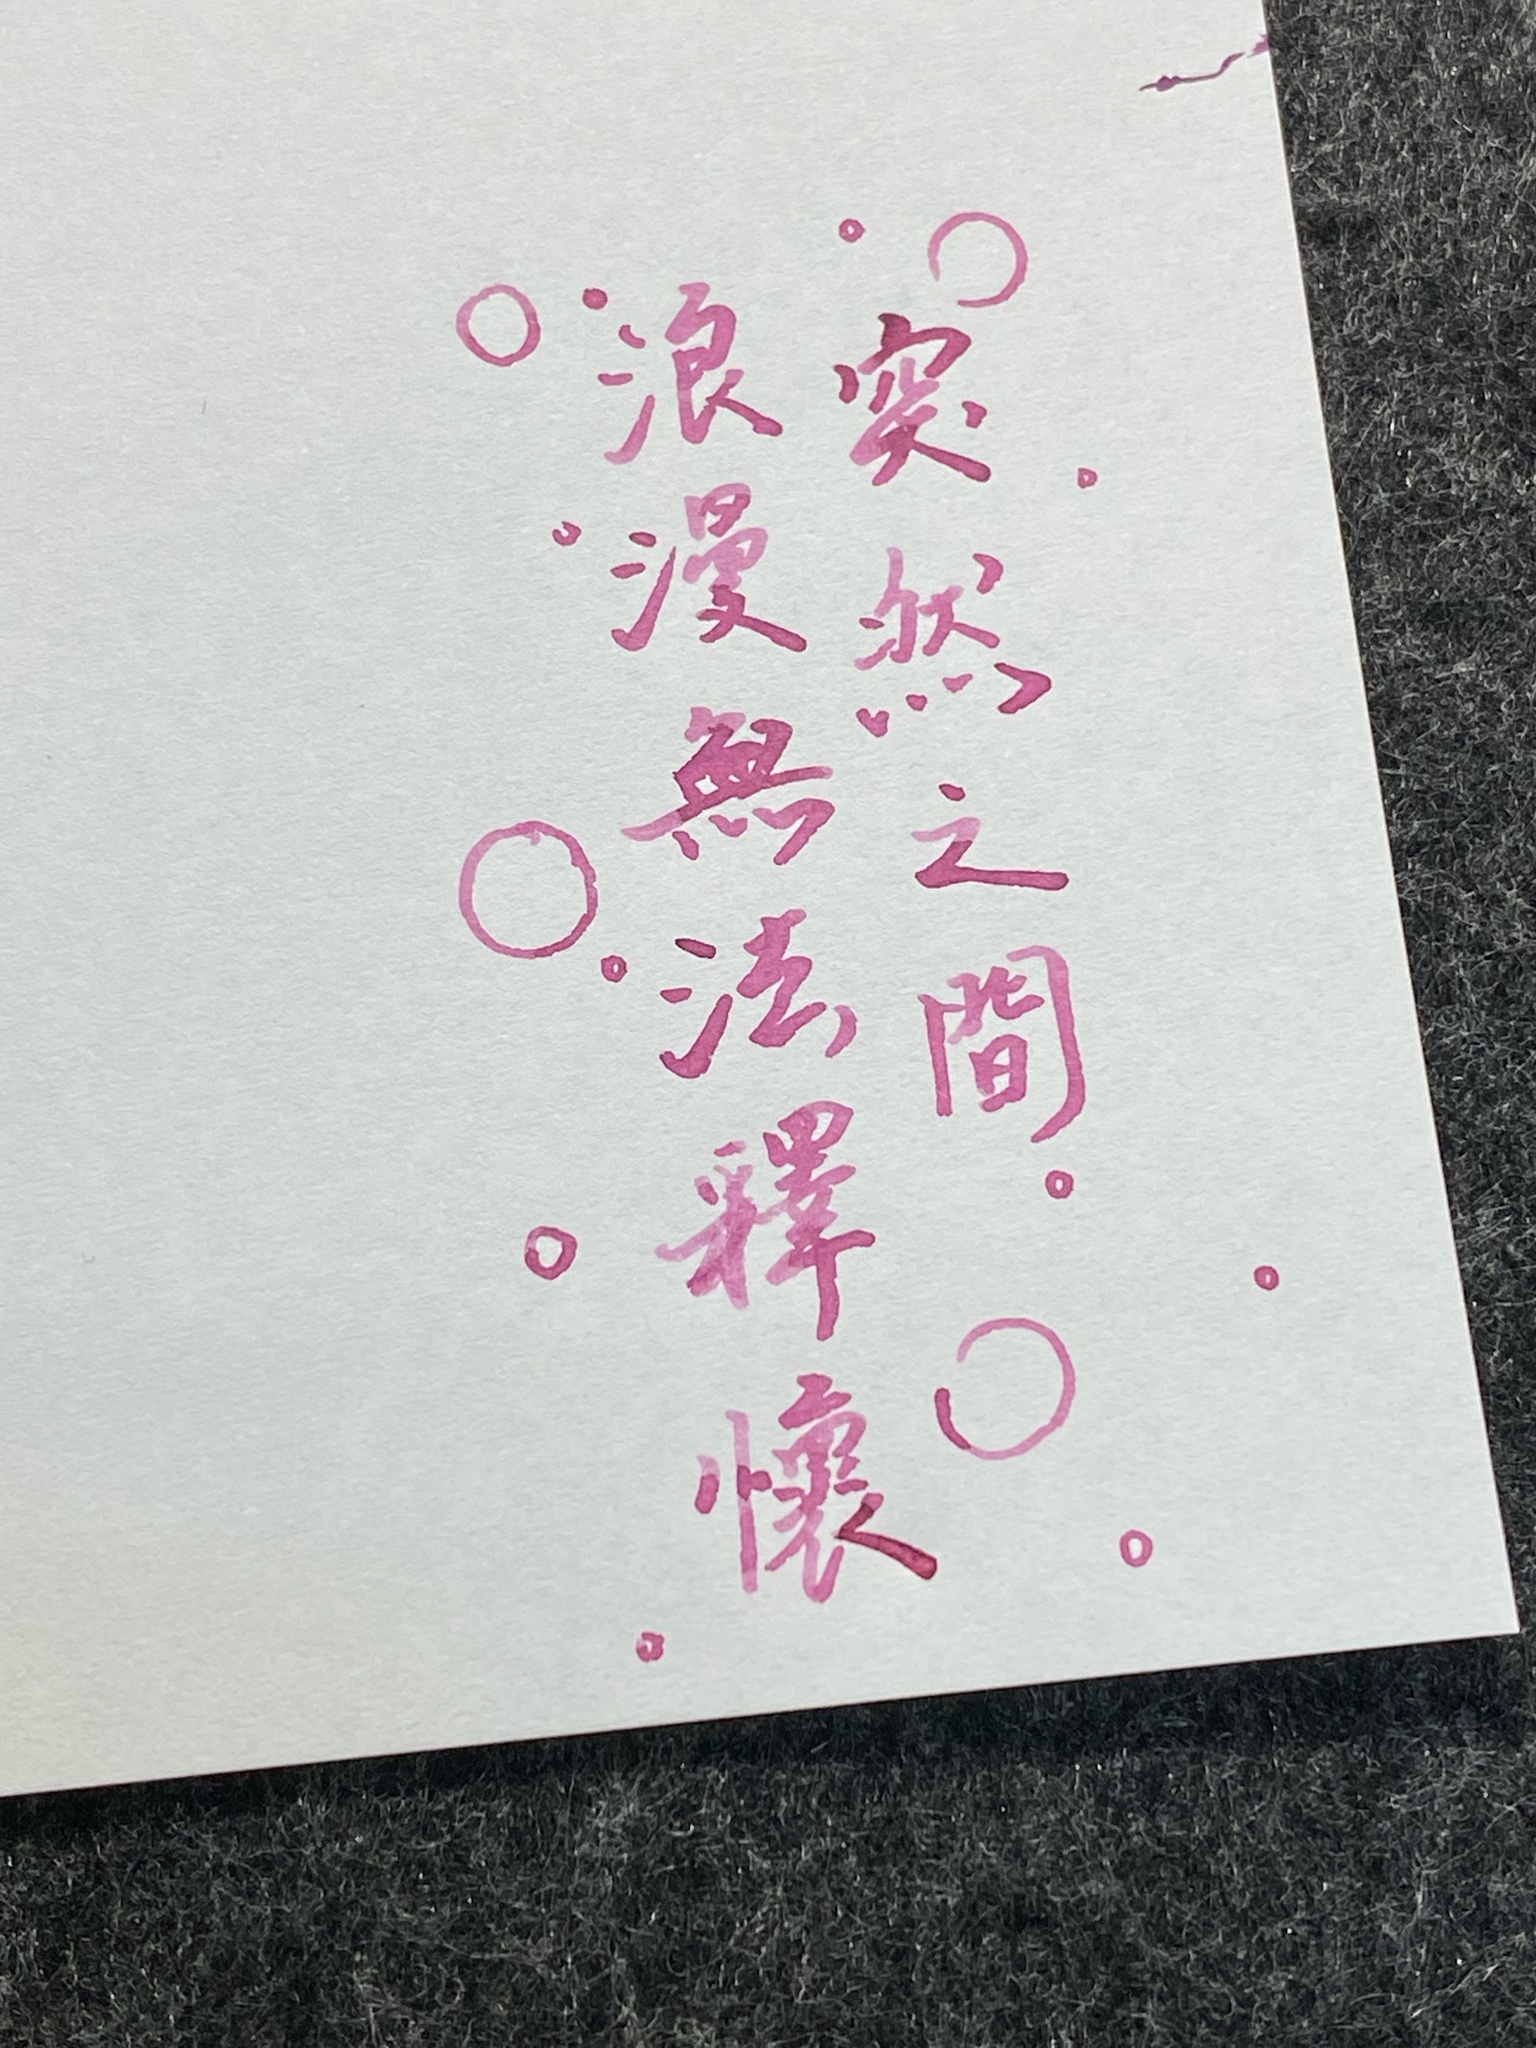 突然之間
浪漫無法釋懷